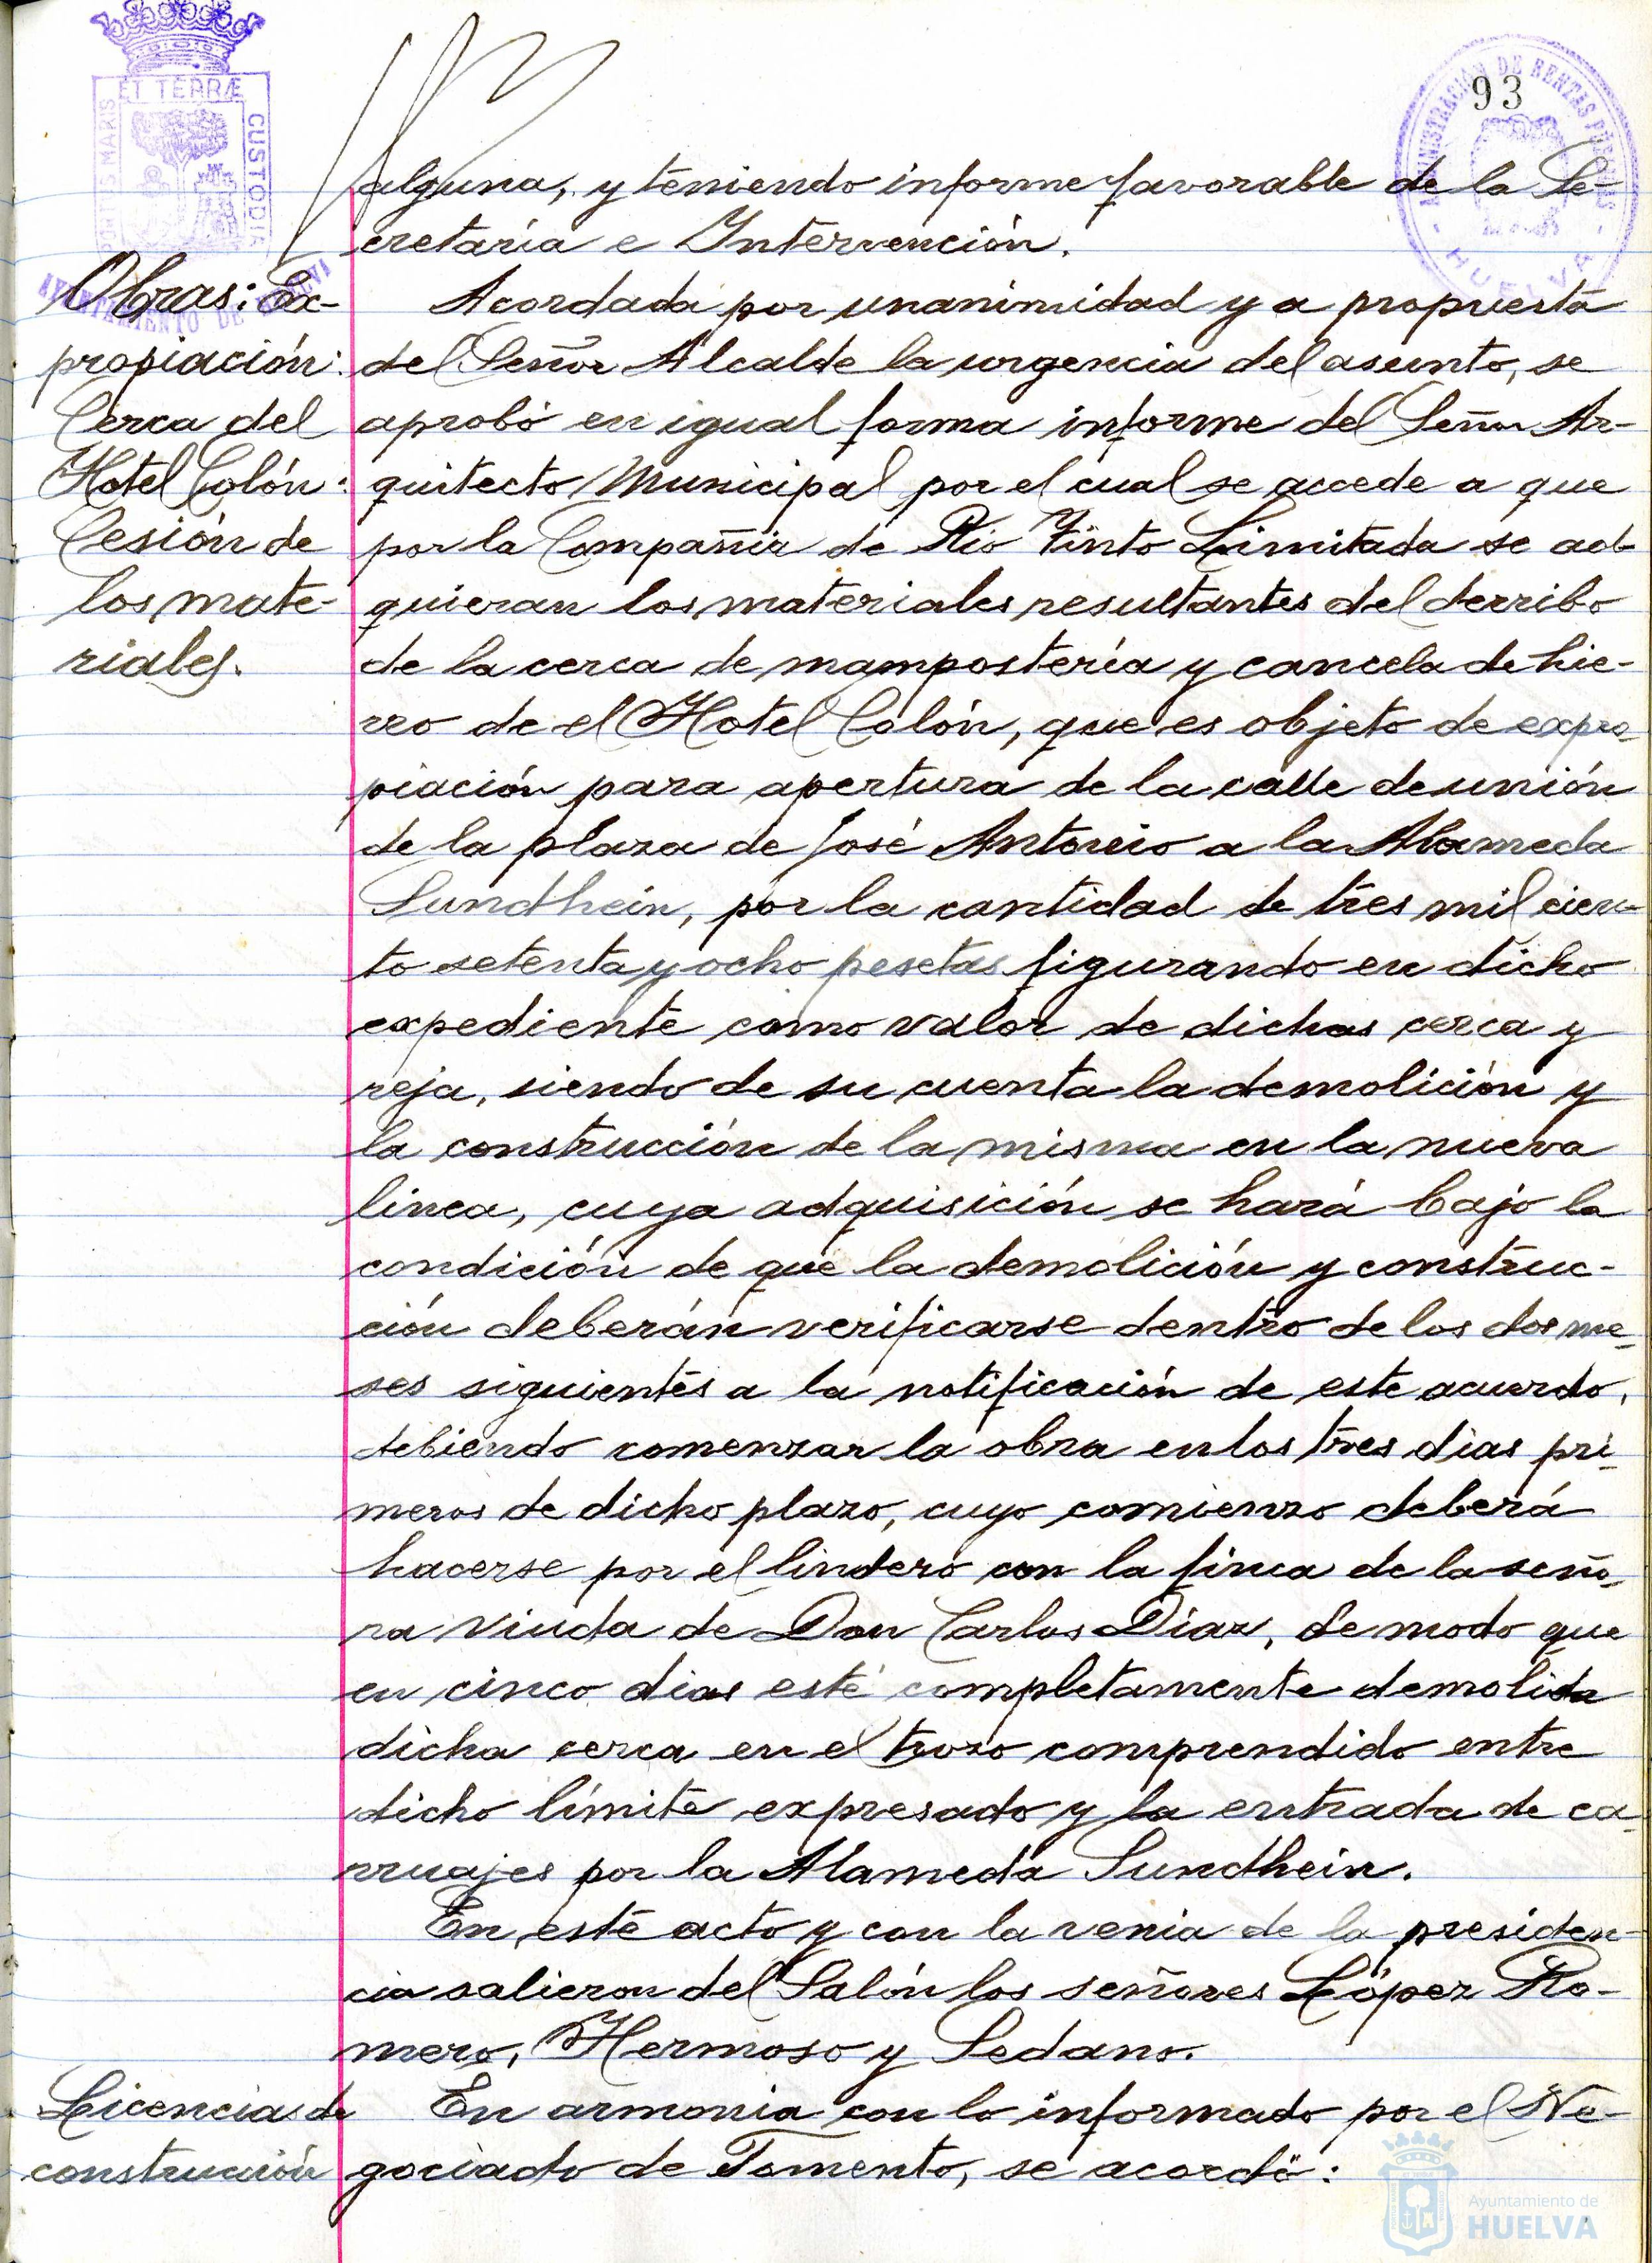 93
ET TERRÆ
CUSTODIA
PORTUS MARIS
AYUNTAMIENTO DE HUELVA
ADMINISTRACIÓN DE RENTAS PÚBLICAS
- HUELVA -
alguna, y teniendo informe favorable de la Se-
cretaría e Intervención.
Obras: Ex-
propiación:
Cerca del
Hotel Colón:
Cesión de
los mate-
riales.
Acordada por unanimidad y a propuesta
del Señor Alcalde la urgencia del asunto, se
aprobó en igual forma informe del Señor Ar-
quitecto Municipal por el cual se accede a que
por la Compañia de Rio Tinto Limitada se ad-
quieran los materiales resultantes del derribo
de la cerca de mampostería y cancela de hie-
rro de el Hotel Colón, que es objeto de expro-
piación para apertura de la calle de unión
de la plaza de José Antonio a la Alameda
Sundhein, por la cantidad de tres mil cien-
to setenta y ocho pesetas figurando en dicho
expediente como valor de dichas cerca y
reja, siendo de su cuenta la demolición y
la construcción de la misma en la nueva
linea, cuya adquisición se hará bajo la
condición de que la demolición y construc-
ción deberán verificarse dentro de los dos me-
ses siguientes a la notificación de este acuerdo,
debiendo comenzar la obra en los tres dias pri-
meros de dicho plazo, cuyo comienzo deberá
hacerse por el lindero con la finca de la seño-
ra Viuda de Don Carlos Diaz, de modo que
en cinco dias esté completamente demolida
dicha cerca en el trozo comprendido entre
dicho límite expresado y la entrada de ca-
rruajes por la Alameda Sundhein.
En este acto y con la venia de la presiden-
cia salieron del Salón los señores López Ro-
mero, Hermoso y Sedano.
Licencias de
construcción
En armonia con lo informado por el Ne-
gociado de Fomento, se acordó:
Ayuntamiento de
HUELVA